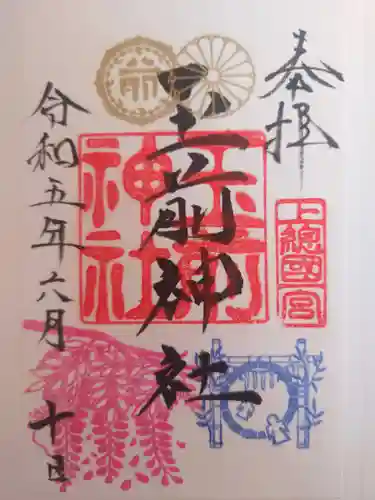 奉拝
上總國一宮
玉前神社
玉前
神社
前
令和五年六月十日